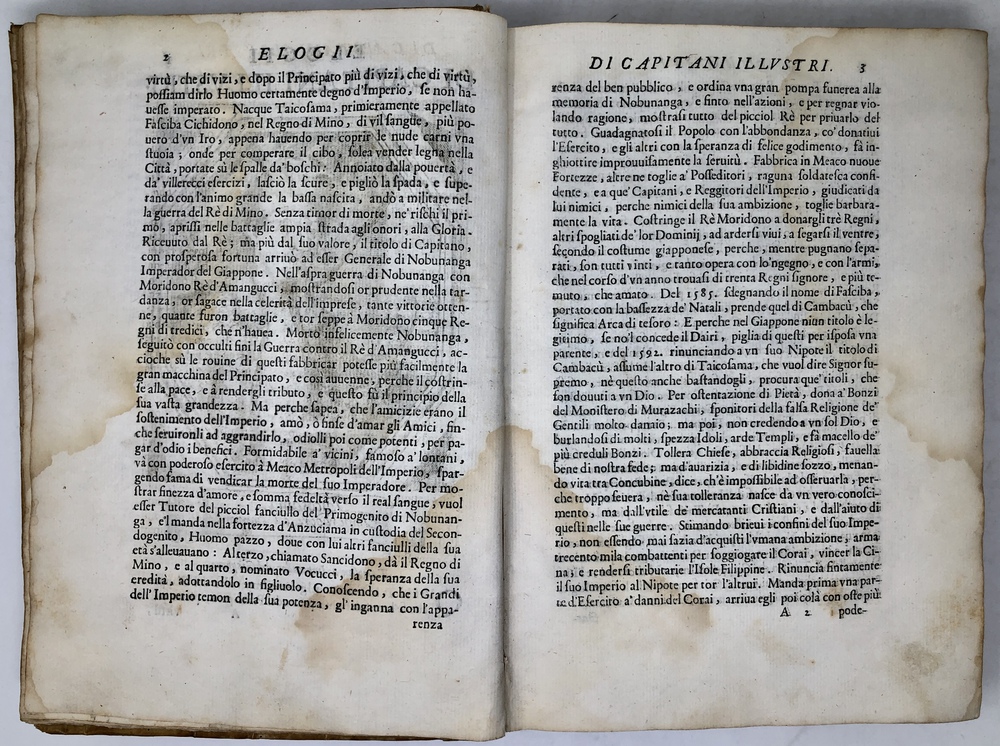 2 ELOGII
virtù, che di vizi, e dopo il Principato più di vizi, che di virtù,
possiam dirlo Huomo certamente degno d'Imperio, se non ha-
uesse imperato. Nacque Taicosama, primieramente appellato
Fasciba Cichidono, nel Regno di Mino, di vil sangue, più po-
uero d'vn Iro, appena hauendo per coprir le nude carni vna
stuoia; onde per comperare il cibo, solea vender legna nella
Città, portate sù le spalle da' boschi: Annoiato dalla pouertà, e
da' villerecci esercizi, lasciò la scure, e pigliò la spada, e supe-
rando con l'animo grande la bassa nascita, andò a militare nel-
la guerra del Rè di Mino. Senza timor di morte, ne' rischi il pri-
mo, aprissi nelle battaglie ampia strada agli onori, alla Gloria.
Riceuuto dal Rè; ma più dal suo valore, il titolo di Capitano,
con prosperosa fortuna arriuò ad esser Generale di Nobunanga
Imperador del Giappone. Nell'aspra guerra di Nobunanga con
Moridono Rè d'Amangucci, mostrandosi or prudente nella tar-
danza, or sagace nella celerità dell'imprese, tante vittorie otten-
ne, quante furon battaglie, e tor seppe à Moridono cinque Re-
gni di tredici, che n'hauea. Morto infelicemente Nobunanga,
seguitò con occulti fini la Guerra contro il Rè d'Amangucci, ac-
cioche sù le rouine di questi fabbricar potesse più facilmente la
gran macchina del Principato, e così auuenne, perche il costrin-
se alla pace, e à rendergli tributo, e questo fù il principio della
sua vasta grandezza. Ma perche sapea, che l'amicizie erano il
sostenimento dell'Imperio, amò, ò finse d'amar gli Amici, fin-
che seruironli ad aggrandirlo, odiolli poi come potenti, per pa-
gar d'odio i benefici. Formidabile a' vicini, famoso a' lontani,
và con poderoso esercito à Meaco Metropoli dell'Imperio, spar-
gendo fama di vendicar la morte del suo Imperadore. Per mo-
strar finezza d'amore, e somma fedeltà verso il real sangue, vuol
esser Tutore del picciol fanciullo del Primogenito di Nobunan-
ga, e'l manda nella fortezza d'Anzuciama in custodia del Secon-
dogenito, Huomo pazzo, doue con lui altri fanciulli della sua
età s'alleuauano: Al terzo, chiamato Sancidono, dà il Regno di
Mino, e al quarto, nominato Vocucci, la speranza della sua
eredità, adottandolo in figliuolo. Conoscendo, che i Grandi
dell'Imperio temon della sua potenza, gl'inganna con l'appa-
renza
DI CAPITANI ILLVSTRI. 3
renza del ben pubblico, e ordina vna gran pompa funerea alla
memoria di Nobunanga, e finto nell'azioni, e per regnar vio-
lando ragione, mostrasi tutto del picciol Rè per priuarlo del
tutto. Guadagnatosi il Popolo con l'abbondanza, co' donatiui
l'Esercito, e gli altri con la speranza di felice godimento, fà in-
ghiottire improuuisamente la seruitù. Fabbrica in Meaco nuoue
Fortezze, altre ne toglie a' Posseditori, raguna soldatesca confi-
dente, e a que' Capitani, e Reggitori dell'Imperio, giudicati da
lui nimici, perche nimici della sua ambizione, toglie barbara-
mente la vita. Costringe il Rè Moridono a donargli trè Regni,
altri spogliati de' lor Dominij, ad ardersi viui, a segarsi il ventre,
secondo il costume giapponese, perche, mentre pugnano sepa-
rati, son tutti vinti, e tanto opera con lo'ngegno, e con l'armi,
che nel corso d'vn anno trouasi di trenta Regni signore, e più te-
muto, che amato. Del 1585. sdegnando il nome di Fasciba,
portato con la bassezza de' Natali, prende quel di Cambacù, che
significa Arca di tesoro: E perche nel Giappone niun titolo è le-
gitimo, se no'l concede il Dairi, piglia di questi per isposa vna
parente, e del 1592. rinunciando a vn suo Nipote il titolo di
Cambacù, assume l'altro di Taicosama, che vuol dire Signor su-
premo, nè questo anche bastandogli, procura que' titoli, che
son douuti a vn Dio. Per ostentazione di Pietà, dona a' Bonzi
del Monistero di Murazachi, sponitori della falsa Religione de'
Gentili molto danaio; ma poi, non credendo a vn sol Dio, e
burlandosi di molti, spezza Idoli, arde Templi, e fà macello de'
più creduli Bonzi. Tollera Chiese, abbraccia Religiosi, fauella
bene di nostra fede; ma d'auarizia, e di libidine sozzo, menan-
do vita tra Concubine, dice, ch'è impossibile ad osseruarla, per-
che troppo seuera, nè sua tolleranza nasce da vn vero conosci-
mento, ma dall'vtile de' mercatanti Cristiani, e dall'aiuto di
questi nelle sue guerre. Stimando brieui i confini del suo Impe-
rio, non essendo mai sazia d'acquisti l'vmana ambizione, arma
trecento mila combattenti per soggiogare il Corai, vincer la Ci-
na, e rendersi tributarie l'Isole Filippine. Rinuncia fintamente
il suo Imperio al Nipote per tor l'altrui. Manda prima vna par-
te d'Esercito a' danni del Corai, arriua egli poi colà con oste più
A 2 pode-